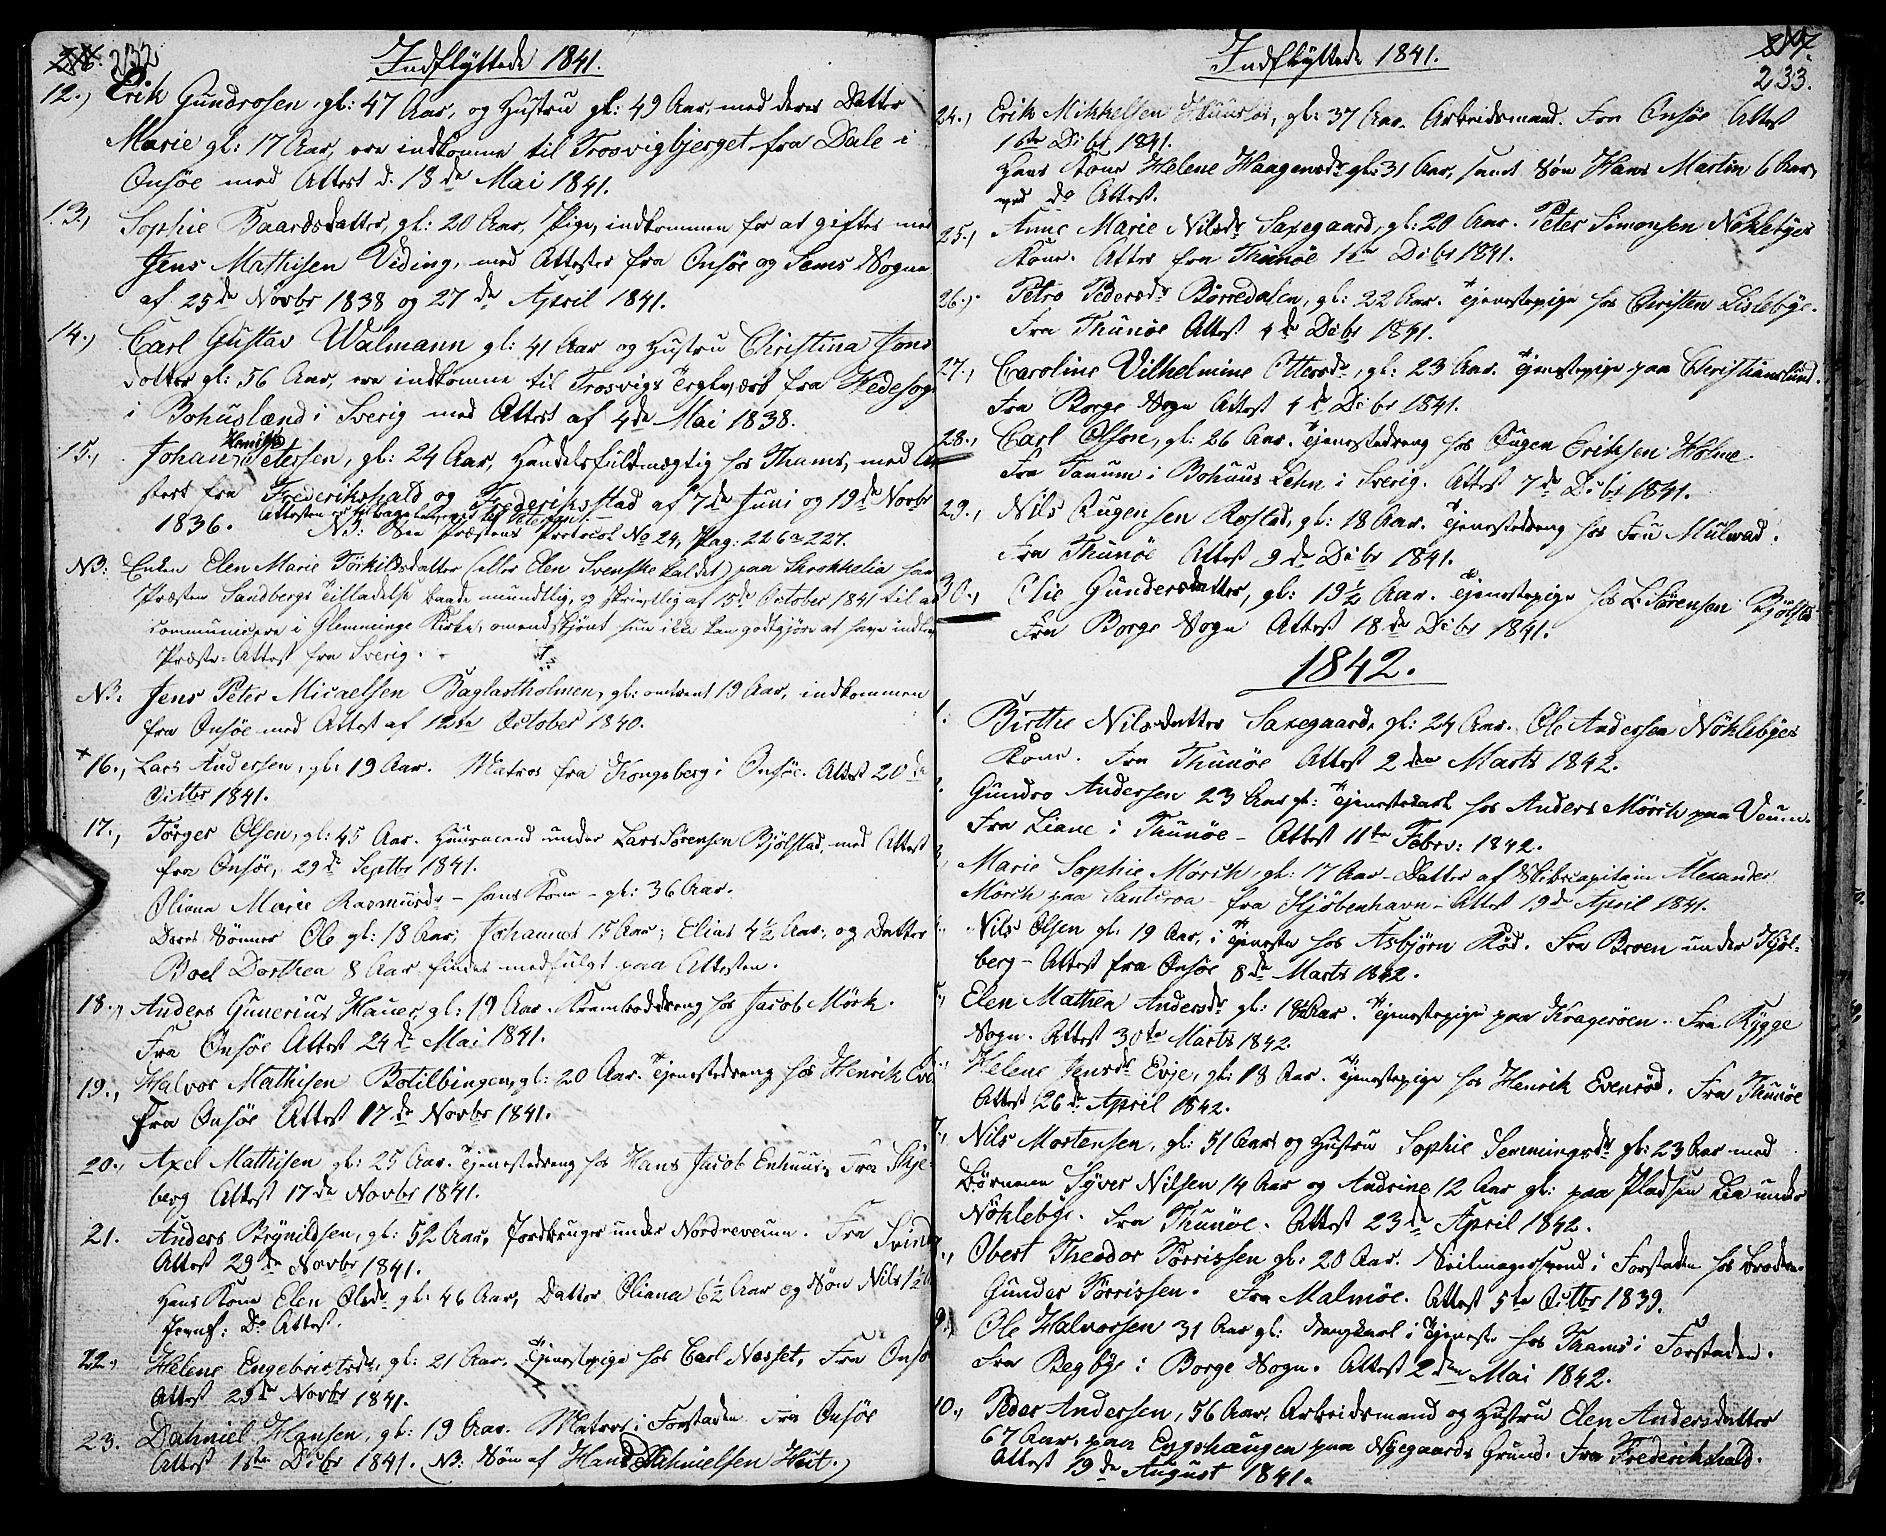 232
Indflyttede 1841.
12., Erik Gundrosen, gl: 47 Aar, og Hustru gl: 49 Aar, med deres Datter
Marie gl: 17 Aar, ere indkomne til Trosvigbjerget fra Dale i
Onsöe med Attest d: 13de Mai 1841.
13., Sophie Baardsdatter, gl: 20 Aar, Pige, indkommen for at giftes med
Jens Mathisen Viding, med Attester fra Onsöe og Sems Sogne
af 25de Novbr 1838 og 27de April 1841.
14., Carl Gustav Walmann gl: 41 Aar og Hustru Christina Jons
dotter gl: 56 Aar, ere indkomne til Trosvigs Teglværk fra Hedesogn
i Bohuslænd i Sverig med Attest af 4de Mai 1838.
15., Johan Petersen, gl: 24 Aar, Handelsfuldmægtig hos Thams, med At
tester fra Frederikshald og Frederiksstad af 7de Juni og 19de Novbr
1836. NB: See Præstens Protocol No 24, Pag: 226 227.
NB: Enken Elen Marie Törkildsdatter (eller Elen Svenske kaldet) paa Skrokkelia har
Præsten Sandbergs Tilladelse baade mundtlig, og skrivtlig af 15de October 1841 til at
communicere i Glemminge Kirke, omendskjönt hun ikke kan godtgjöre at have indlev
Præste-Attest fra Sverig.
NB: Jens Peter Micaelsen Baglastholmen, gl: omtrent 19 Aar, indkommen
fra Onsöe med Attest af 12te October 1840.
16., Lars Andersen, gl: 19 Aar. Matros fra Kongsberg i Onsöe. Attest 20de
Octbr 1841.
17., Törger Olsen, gl: 45 Aar. Huusmand under Lars Sörensen Bjölstad, med Attest
fra Onsöe, 29de Septbr 1841.
Oliana Marie Rasmusdr - hans Kone - gl: 36 Aar.
Deres Sönner Ole gl: 18 Aar, Johannes 15 Aar; Elias 4½ Aar, og Datter
Boel Dorthea 8 Aar findes medfulgt paa Attesten.
18., Anders Gunerius Hauer, gl: 19 Aar. Kramboddreng hos Jacob Mörk.
Fra Onsöe Attest 24de Mai 1841.
19., Halvor Mathisen Botilbingen, gl: 20 Aar. Tjenestedreng hos Henrik
Fra Onsöe Attest 17de Novbr 1841.
20., Axel Mathisen gl: 25 Aar. Tjenestedreng hos Hans Jacob Enhuus. Fra Skje-
berg Attest 17de Novbr 1841.
21. Anders Brynildsen, gl: 52 Aar, Jordbruger under Nordreveum. Fra
Attest 29de Novbr 1841.
Hans Kone Elen Olsdr gl: 46 Aar, Datter Oliana 6½ Aar og Sön Nils 1½
Jevnf: Do Attest.
22., Helene Engebretsdr, gl: 21 Aar. Tjenestepige hos Carl Næsset, Fra Onsö
Attest 29de Novbr 1841.
23. Dahniel Hansen, gl: 19 Aar. Matros i Forstaden. Fra Onsöe
Attest 1ste Decbr 1841. (NB: Sön af Hans Dahnielsen Hut.)
233.
Indflyttede 1841.
24., Erik Mikkelsen Huuslös, gl: 37 Aar. Arbeidsmand. Fra Onsöe Attest
1ste Decbr 1841.
Hans Kone Helene Haagensdr gl: 31 Aar, samt Sön Hans Martin 6 Aar,
ved do Attest.
25., Anne Marie Nilsdr Saxegaard, gl: 20 Aar. Peter Simonsen Nöklebyes
Kone. Attest fra Thunöe 1ste Decbr 1841.
26., Petro Pedersdr Börredalen, gl: 22 Aar. Tjenestepige hos Christen Lislebye.
Fra Thunöe Attest 4de Decbr 1841.
27., Caroline Vilhelmine Ottersdr, gl: 23 Aar. Tjenestepige paa Christianslund.
Fra Borge Sogn Attest 4de Decbr 1841.
28., Carl Olson, gl: 26 Aar. Tjenestedreng hos Eugen Eriksen Holme.
Fra Tanum i Bohuus Lehn i Sverig. Attest 7de Decbr 1841.
29., Nils Eugensen Rostad, gl: 18 Aar. Tjenestedreng hos Fru Mulvad.
Fra Thunöe Attest 9de Decbr 1841.
30., Olie Gundersdatter, gl: 19½ Aar. Tjenestepige hos L. Sörensen Bjölstad
Fra Borge Sogn Attest 18de Decbr 1841.
1842.
1. Birthe Nilsdatter Saxegaard, gl: 24 Aar. Ole Andersen Nöklebyes
Kone. Fra Thunöe Attest 2den Marts 1842.
Gundro Andersen 23 Aar gl: Tjenestekarl hos Anders Mörch paa Veum.
Fra Liane i Thunöe - Attest 11te Febrv: 1842.
Marie Sophie Mörch, gl: 17 Aar. Datter af Skibscapitain Alexander
Mörch paa Santcroa - fra Kjöbenhavn - Attest 19de April 1841.
Nils Olsen gl: 19 Aar, i Tjeneste hos Asbjörn Röd. Fra Broen under Kjöl-
berg - Attest fra Onsöe 8de Marts 1842.
5., Elen Mathea Andersdr gl: 18 Aar. Tjenestepige paa Kragerøen. Fra Rygge
Sogn. Attest 30te Marts 1842.
Helene Jensdr Evje, gl: 18 Aar. Tjenestepige hos Henrik Evenröd. Fra Thunöe
Attest 26de April 1842.
7., Nils Mortensen, gl: 51 Aar og Hustru Sophie Semmingsdr gl: 23 Aar med
Börnene Syver Nilsen 14 Aar og Andrine 12 Aar gl: paa Pladsen Lia under
Nöklebye. Fra Thunöe. Attest 23de April 1842.
Obert Theodor Törrissen gl: 20 Aar. Seilmagersvend i Forstaden hos Broderen
Gunder Törrissen. Fra Malmöe. Attest 5te Octbr 1839.
9., Ole Halvorsen 31 Aar gl: i Tjeneste hos Thams i Forstaden.
Fra Begbye i Borge Sogn. Attest 2den Mai 1842.
10., Peder Andersen, 56 Aar, Arbeidsmand og Hustru Elen Andersdatter
67 Aar, paa Engshaugen paa Nyegaards Grund. Fra Frederikshald.
Attest 19de August 1841.